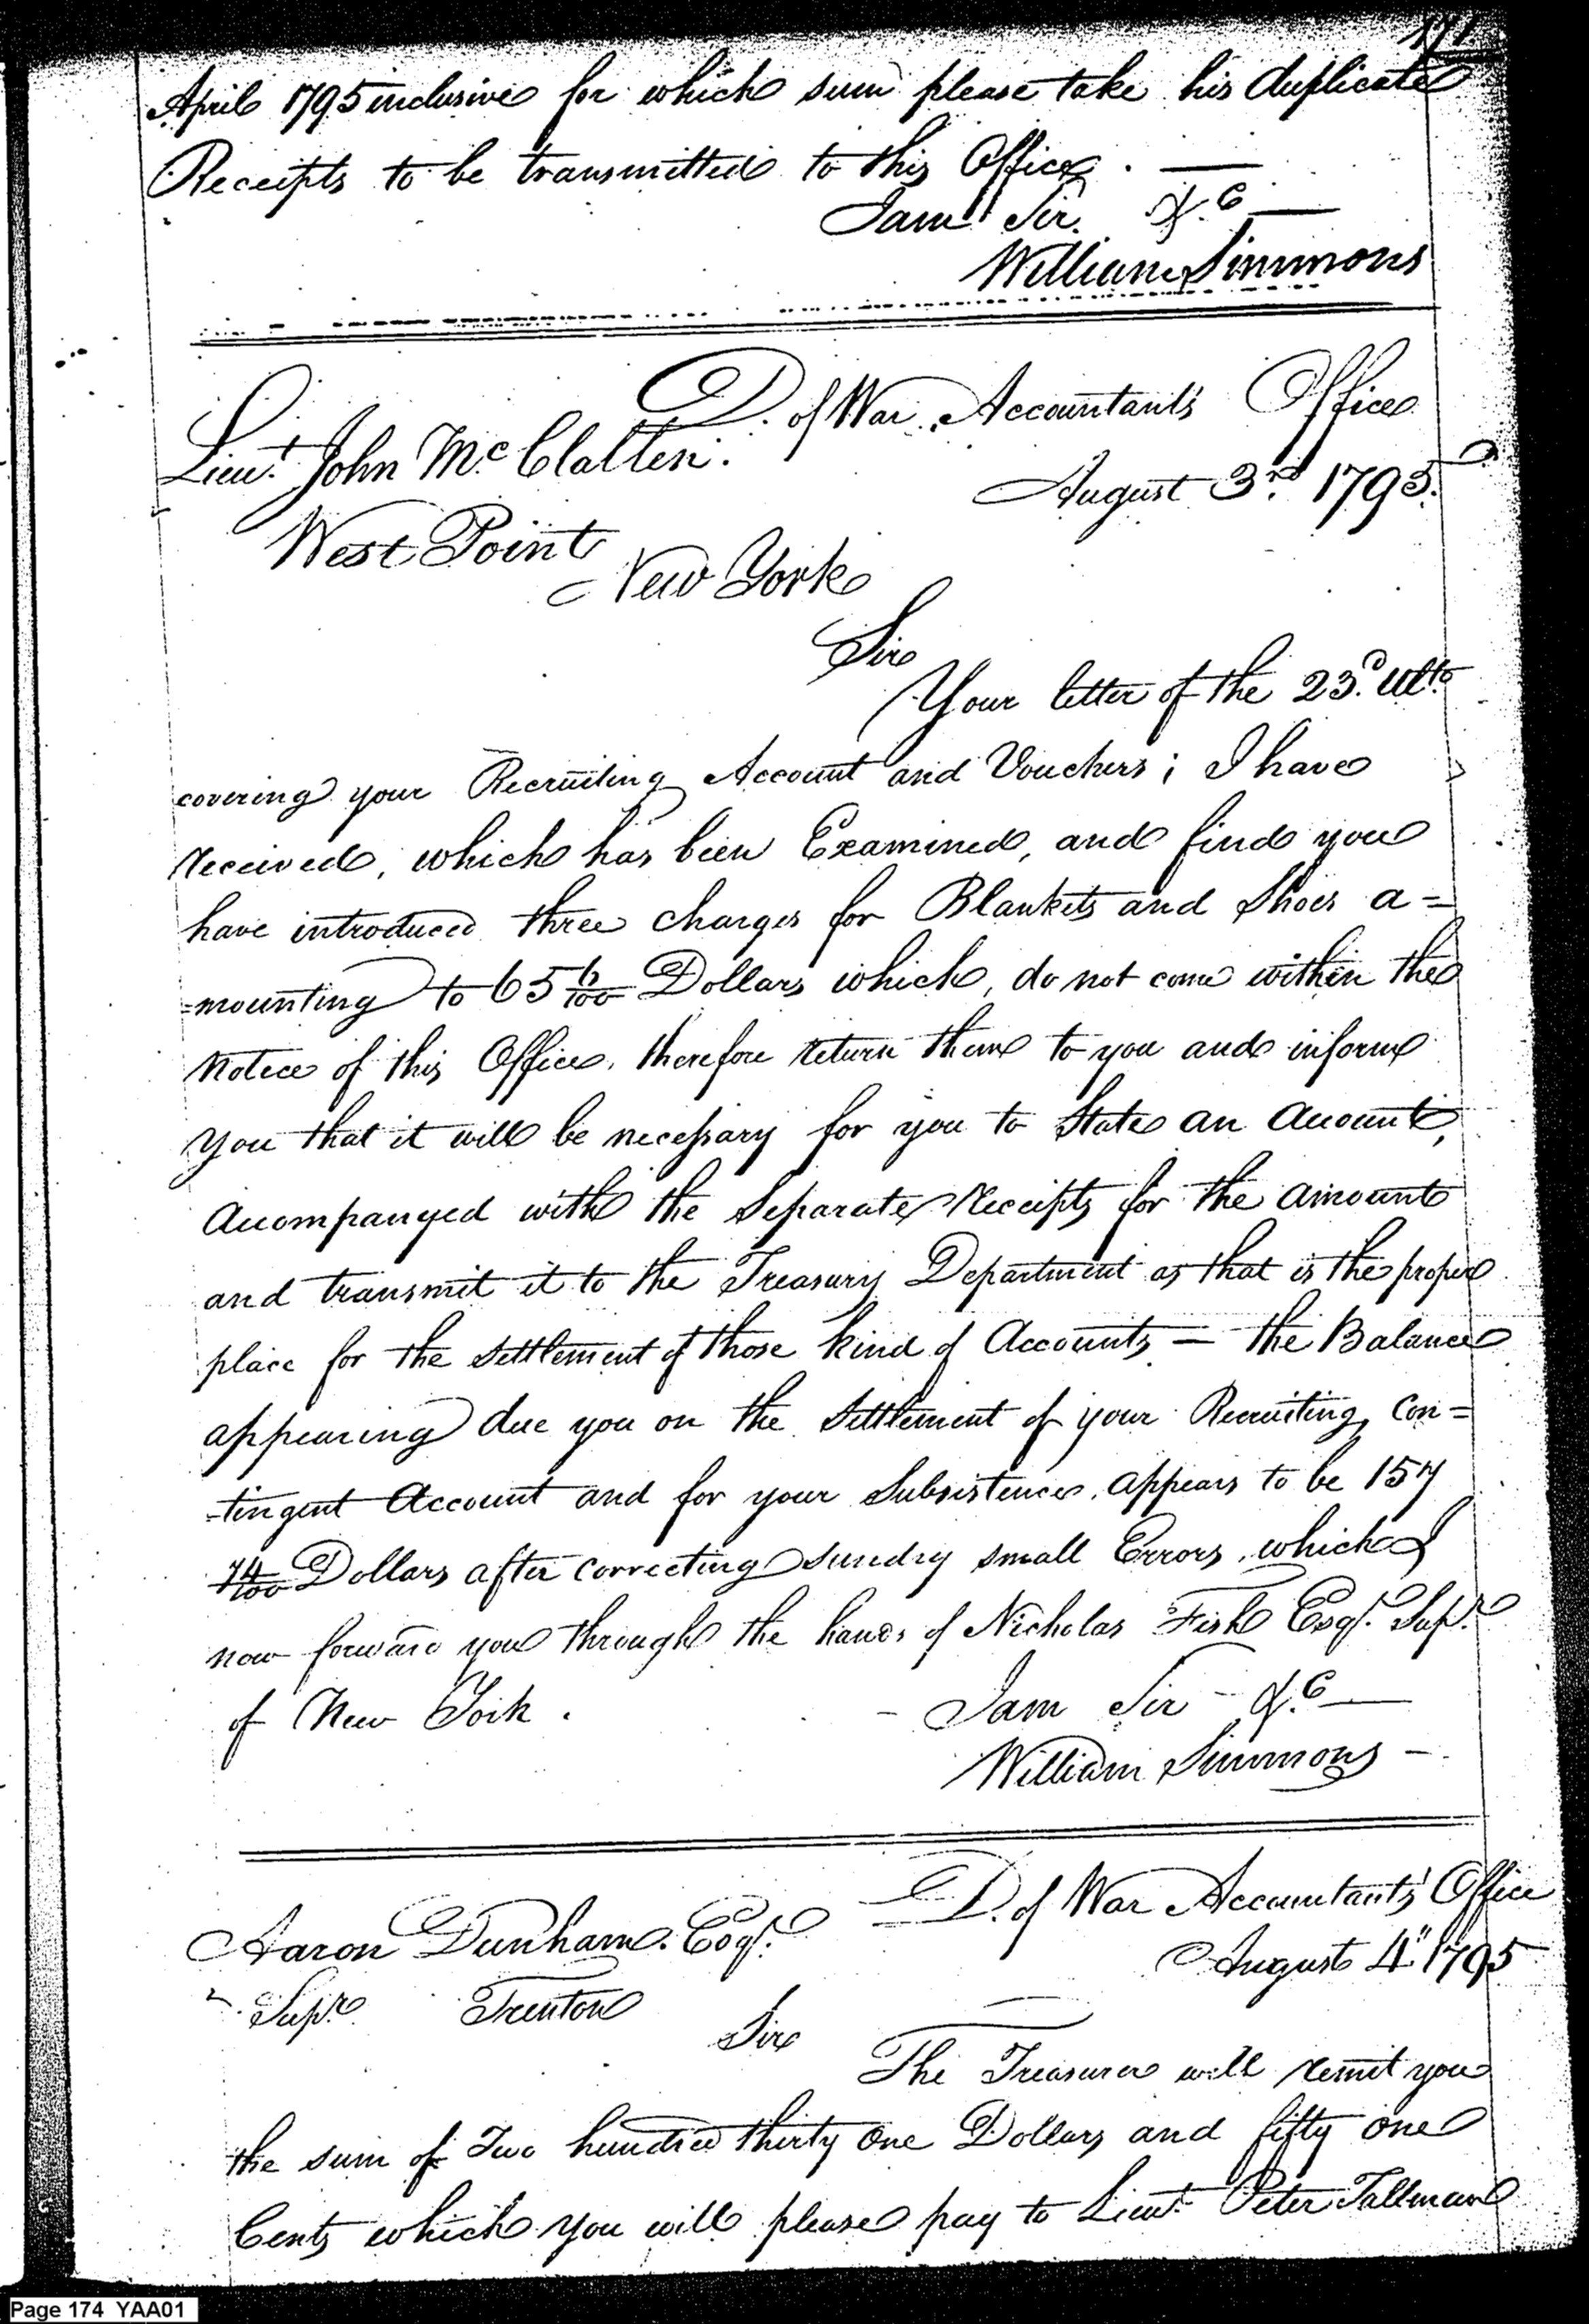 171
April 1795 inclusive for which sum please take his duplicate
Receipts to be transmitted to this Office. —
I am Sir &c —
William Simmons
D. of War Accountant's Office
Lieut. John Mc Clallen.
August 3rd 1795.
West Point
New York
Sir
Your letter of the 23d. Ulto
covering your Recruiting Account and Vouchers; I have
received, which has been Examined, and find you
have introduced three charges for Blankets and Shoes a=
=mounting to 65 6/100 Dollars which, do not come within the
notice of this Office, therefore return them to you and inform
you that it will be necessary for you to State an Account,
Accompanyed with the Separate receipts for the amount
and transmit it to the Treasury Department as that is the proper
place for the settlement of those kind of Accounts — the Balance
appearing due you on the Settlement of your Recruiting, Con=
=tingent Account and for your Subsistence, appears to be 157
74/100 Dollars after correcting sundry small Errors, which I
now forward you through the hands of Nicholas Fish Esqr. Supr.
of New York.
I am Sir - &c —
William Simmons —
D. of War Accountants' Office
Aaron Dunham. Esqr.
August 4" 1795
Supr. Trenton
Sir
The Treasurer will remit you
the sum of Two hundred thirty one Dollars and fifty one
Cents which you will please pay to Lieut. Peter Tallman
Page 174 YAA01